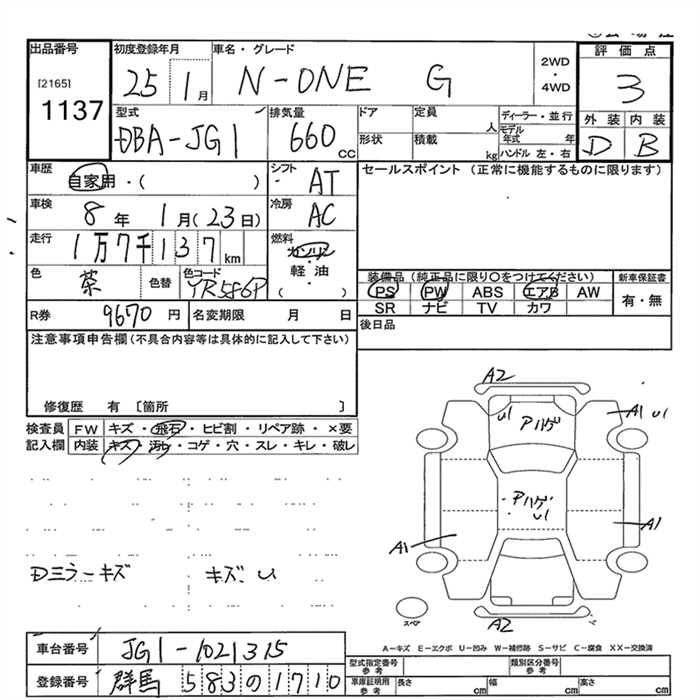 出品番号
[2165]
1137
初度登録年月
25 1月
車名・グレード
N-ONE G
2WD
・
4WD
評価点
3
型式
DBA-JG1
排気量
660 CC
ドア
定員
人
形状
積載
kg
ディーラー・並行
モデル年式 年
ハンドル 左・右
外装 内装
D B
車歴
自家用・( )
シフト
AT
車検
8年 1月(23日)
冷房
AC
走行
1万7千137 km
燃料
ガソリン
軽・油
( )
色
茶
色替
色コード
YR586P
セールスポイント (正常に機能するものに限ります)
装備品(純正品に限り○をつけてください)
PS PW ABS エアB AW
SR ナビ TV カワ
新車保証書
有・無
後日品
R券 9670円
名変期限 月 日
注意事項申告欄(不具合内容等は具体的に記入して下さい)
修復歴 有 [箇所 ]
検査員記入欄
FW キズ・飛石・ヒビ割・リペア跡・×要
内装 キズ・汚レ・コゲ・穴・スレ・キレ・破レ
Dミラーキズ
キズ・U
A2
U1
Pハゲ
A1 U1
Pハゲ
U1
A1
A1
A2
スペア
A－キズ E－エクボ U－凹み W－補修跡 S－サビ C－腐食 XX－交換済
車台番号 JG1-1021315
登録番号 群馬 583 の 1710
型式指定番号 参考
類別区分番号 参考
車庫証明用 参考
長さ cm
幅 cm
高さ cm